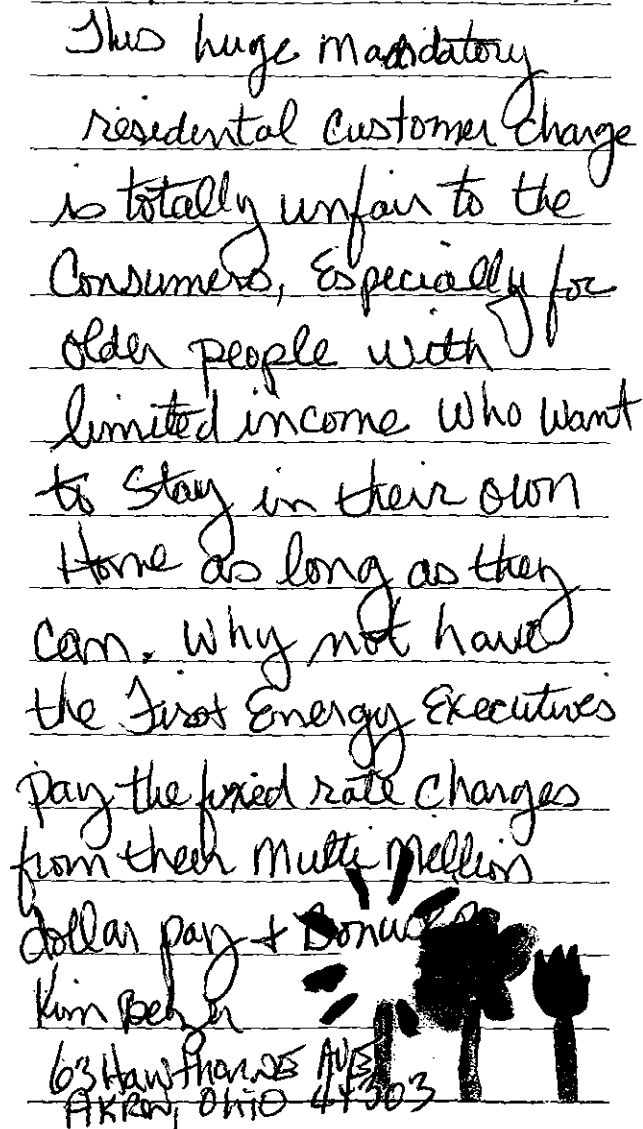 This huge Mandidatory
residental customer charge
is totally unfair to the
Consumers, Especially for
older people with
limited income who want
to Stay in their own
Home as long as they
can. Why not have
the First Energy Executives
pay the fixed rate charges
from their Multi Million
dollar pay + Bonuses
Kim
63 Hawthorne AVE
AKRON, OHIO 44303